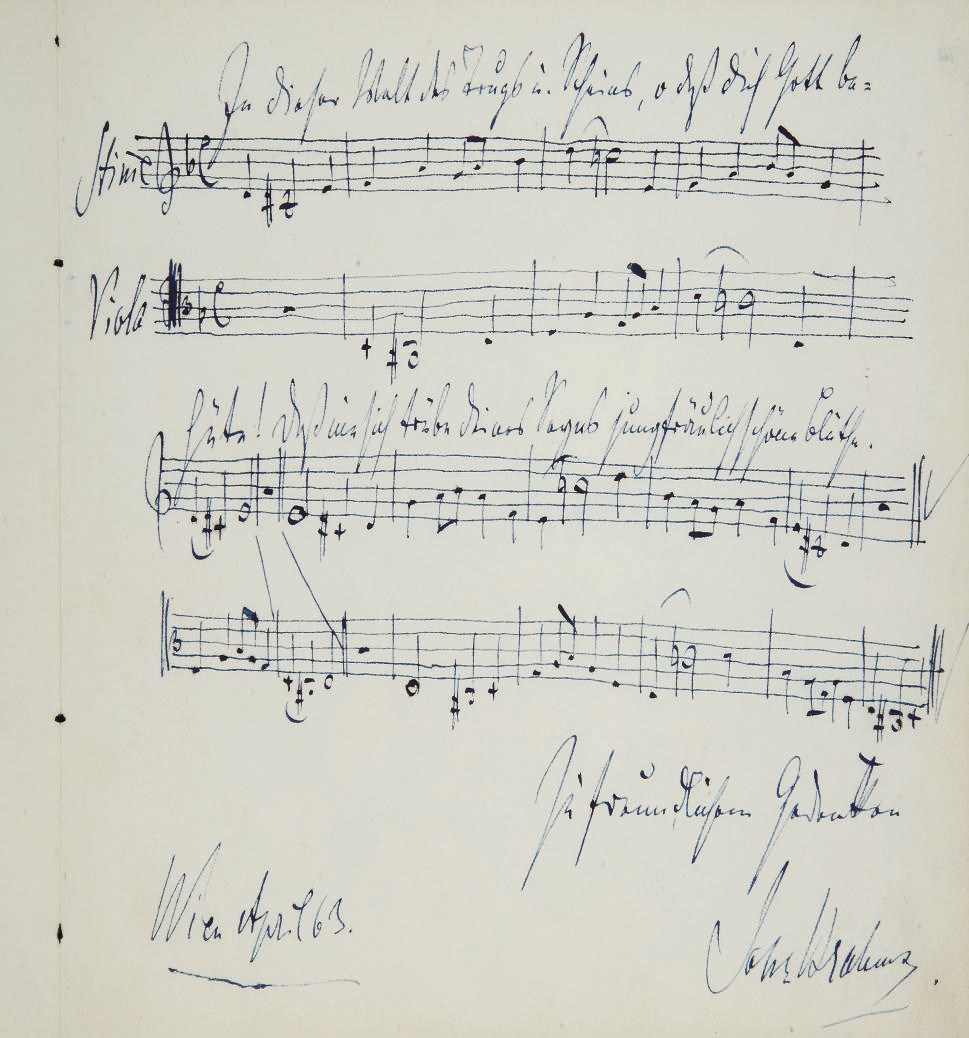 In dieser Welt des Trugs u. Scheins, o daß dich Gott be=
Stimme
Viola
hüte! Daß nie sich trübe deines Segens jungfräulich schöne Blüthe.
Zu freundlichem Gedenken
Wien April 63.
Johs Brahms.